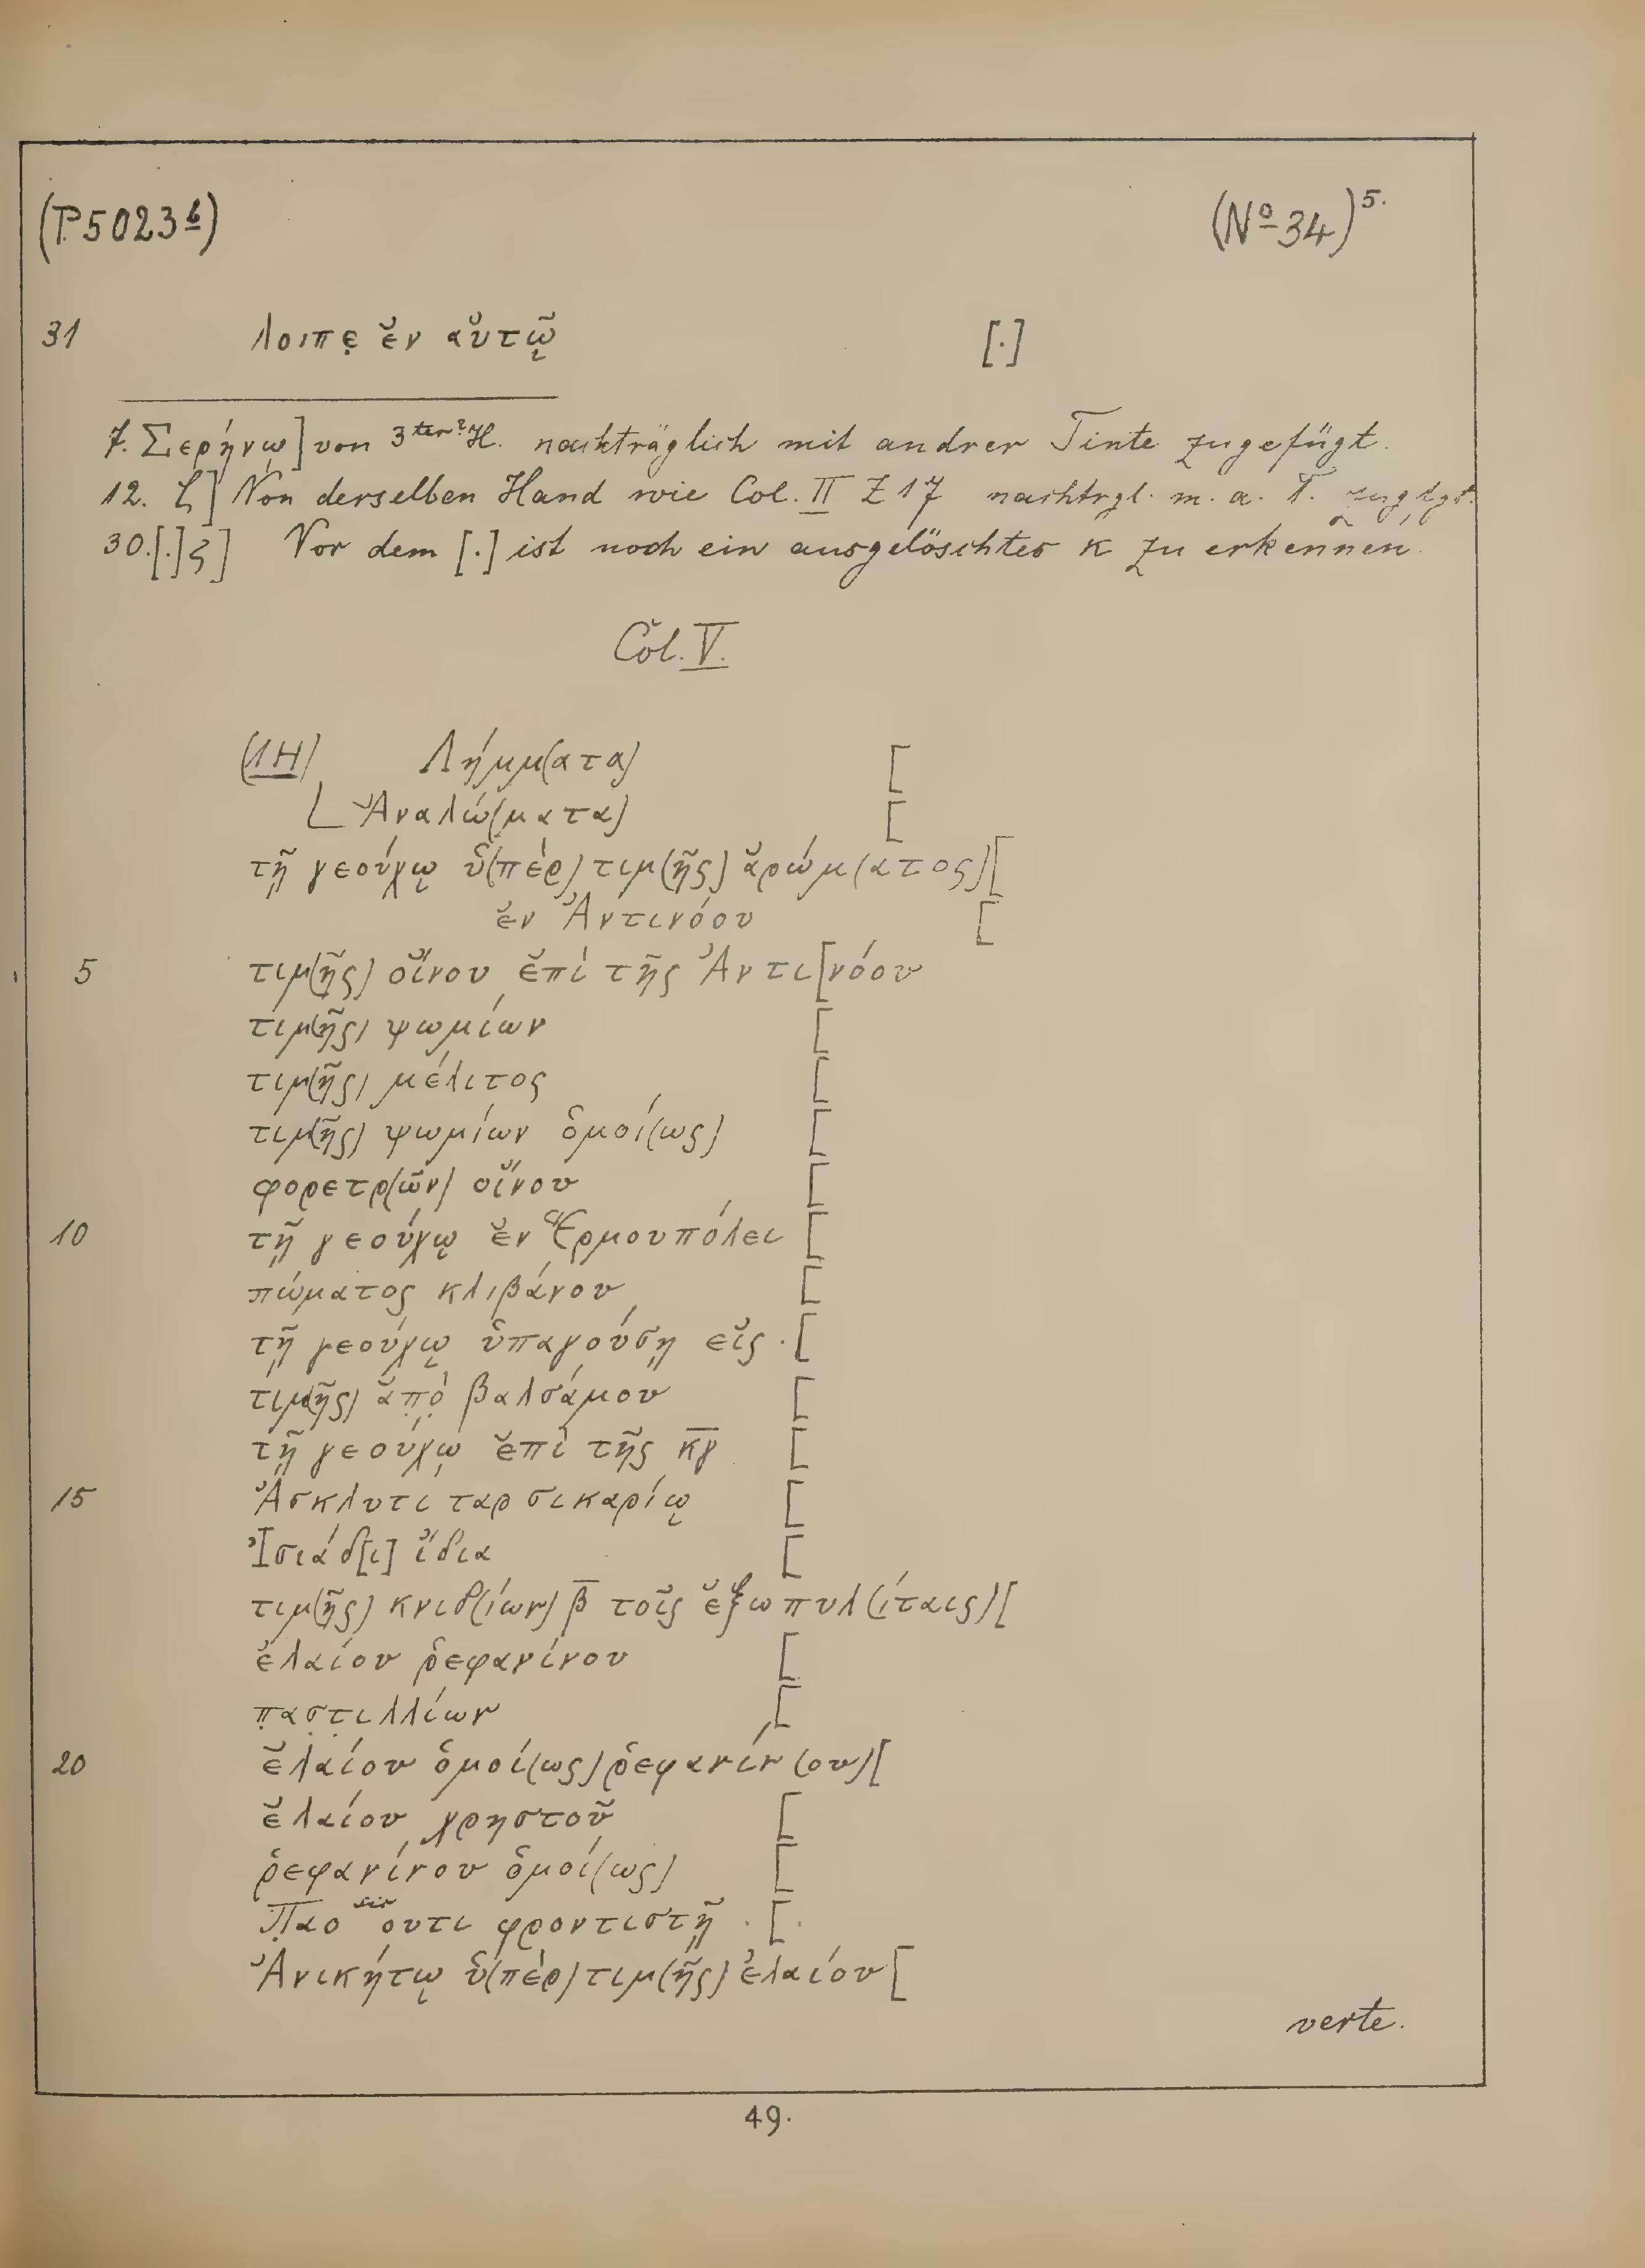 (P 5023 b)
(Nº 34) 5.
31 λοιπε̣ ἐν αὐτῷ [.]
7. Σερήνῳ] von 3ter? H. nachträglich mit andrer Tinte zugefügt.
12. ] Von derselben Hand wie Col. II Z 17 nachtrgl. m. a. T. zugfgt.
30. [.]ς] Vor dem [.] ist noch ein ausgelöschtes κ zu erkennen.
Col. V.
(1H) Λήμμ(ατα) [
Ἀναλώ(ματα) [
τῇ γεούχῳ ὑ(πὲρ) τιμ(ῆς) ἀρώμ(ατος) [
ἐν Ἀντινόου [
5 τιμ(ῆς) οἴνου ἐπὶ τῆς Ἀντι[νόου
τιμ(ῆς) ψωμίων [
τιμ(ῆς) μέλιτος [
τιμ(ῆς) ψωμίων ὁμοί(ως) [
φορετρ(ῶν) οἴνου [
10 τῇ γεούχῳ ἐν Ἑρμουπόλει [
πώματος κλιβάνου [
τῇ γεούχῳ ὑπαγούσῃ εἰς . [
τιμ(ῆς) ἀπ̣ὸ̣ βαλσάμου [
τῇ γεούχῳ ἐπὶ τῆς κ̅γ̅ [
15 Ἀσκλυτι ταρσικαρίῳ [
Ἰσιάδ[ι] ἴδια [
τιμ(ῆς) κνιδ(ίων) β̅ τοῖς ἐξωπυλ(ίταις) [
ἐλαίου ῥεφανίνου [
π̣ασ̣τ̣ιλλίων [
20 ἐλαίου ὁμοί(ως) ῥεφανίν(ου) [
ἐλαίου χρηστοῦ [
ῥεφανίνου ὁμοί(ως) [
Π̣αο sic ουτι φροντιστῇ . [.
Ἀνικήτῳ ὑ(πὲρ) τιμ(ῆς) ἐλαίου [
verte.
49.